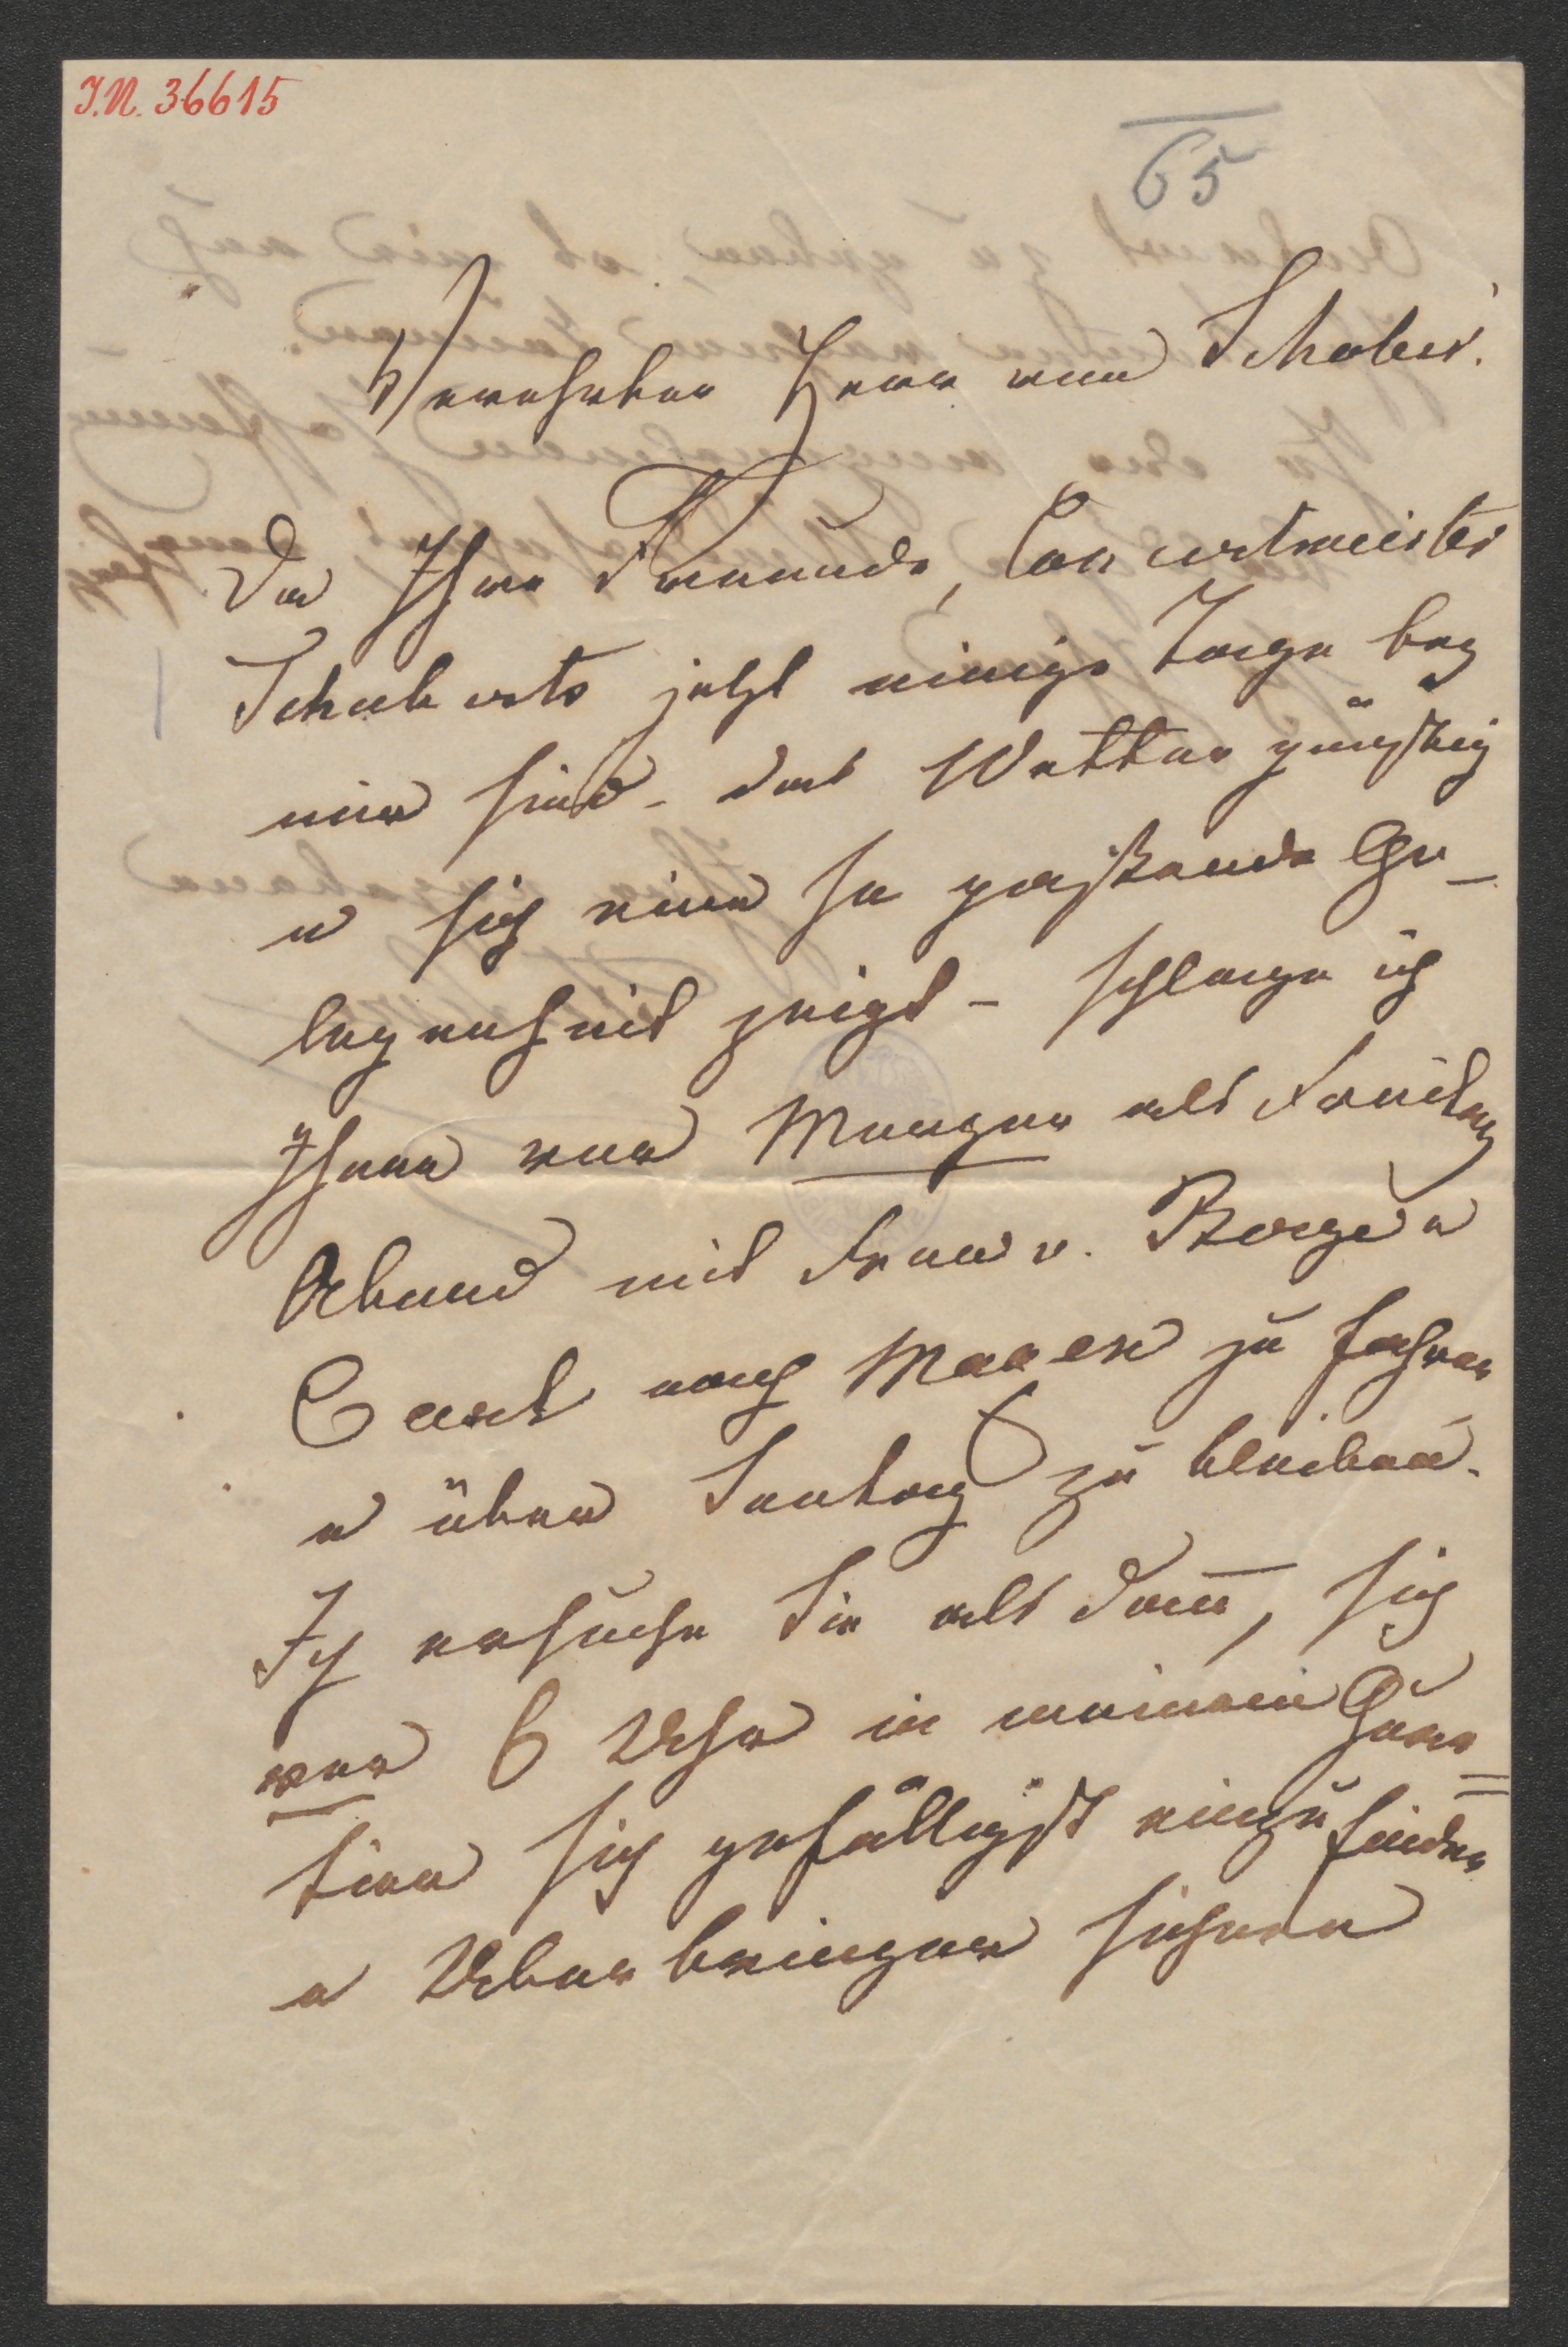 I.N. 36615
65
Verehrter Herr von Schober.
Da Ihre Freunde, Concertmeister
Schuberts jetzt einige Tage bey
mir sind - das Wetter günstig
u sich eine so passende Ge-
legenheit zeigt - schlage ich
Ihnen vor Morgen als Freitag
Abend mit Frau v. u
nach Maxen zu fahren
u über Sontag zu bleiben.
Ich ersuche Sie als dann, sich
vor 6 Uhr in meinem Quar=
tier sich gefälligst einzufinden
u Ueberbringer sichere